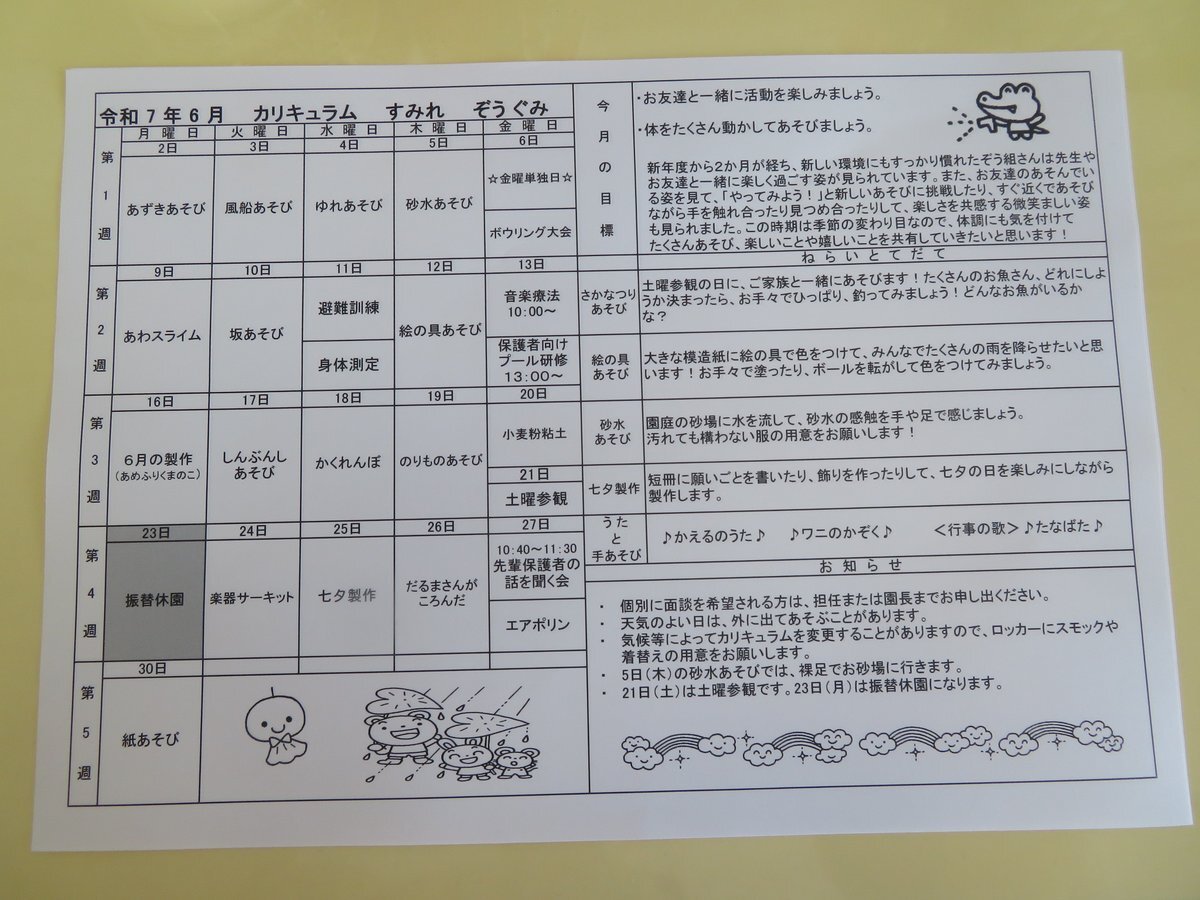 令和７年６月　カリキュラム　すみれ　ぞうぐみ
月曜日　火曜日　水曜日　木曜日　金曜日
第1週
2日　3日　4日　5日　6日
あずきあそび　風船あそび　ゆれあそび　砂水あそび
☆金曜単独日☆
ボウリング大会
第2週
9日　10日　11日　12日　13日
あわスライム　坂あそび
避難訓練
身体測定
絵の具あそび
音楽療法
10:00～
保護者向け
プール研修
13:00～
第3週
16日　17日　18日　19日　20日
６月の製作
（あめふりくまのこ）
しんぶんし
あそび
かくれんぼ
のりものあそび
小麦粉粘土
21日
土曜参観
第4週
23日　24日　25日　26日　27日
振替休園　楽器サーキット　七夕製作
だるまさんが
ころんだ
10:40～11:30
先輩保護者の
話を聞く会
エアポリン
第5週
30日
紙あそび
今月の目標
・お友達と一緒に活動を楽しみましょう。
・体をたくさん動かしてあそびましょう。
新年度から２か月が経ち、新しい環境にもすっかり慣れたぞう組さんは先生や
お友達と一緒に楽しく過ごす姿が見られています。また、お友達のあそんでい
る姿を見て、「やってみよう！」と新しいあそびに挑戦したり、すぐ近くであそび
ながら手を触れ合ったり見つめ合ったりして、楽しさを共感する微笑ましい姿
も見られました。この時期は季節の変わり目なので、体調にも気を付けて
たくさんあそび、楽しいことや嬉しいことを共有していきたいと思います！
ねらいとてだて
さかなつり
あそび
土曜参観の日に、ご家族と一緒にあそびます！たくさんのお魚さん、どれにしよ
うか決まったら、お手々でひっぱり、釣ってみましょう！どんなお魚がいるか
な？
絵の具
あそび
大きな模造紙に絵の具で色をつけて、みんなでたくさんの雨を降らせたいと思
います！お手々で塗ったり、ボールを転がして色をつけてみましょう。
砂水
あそび
園庭の砂場に水を流して、砂水の感触を手や足で感じましょう。
汚れても構わない服の用意をお願いします！
七夕製作
短冊に願いごとを書いたり、飾りを作ったりして、七夕の日を楽しみにしながら
製作します。
うた
と
手あそび
♪かえるのうた♪　♪ワニのかぞく♪　＜行事の歌＞♪たなばた♪
お知らせ
・　個別に面談を希望される方は、担任または園長までお申し出ください。
・　天気のよい日は、外に出てあそぶことがあります。
・　気候等によってカリキュラムを変更することがありますので、ロッカーにスモックや
着替えの用意をお願いします。
・　5日（木）の砂水あそびでは、裸足でお砂場に行きます。
・　21日（土）は土曜参観です。23日（月）は振替休園になります。